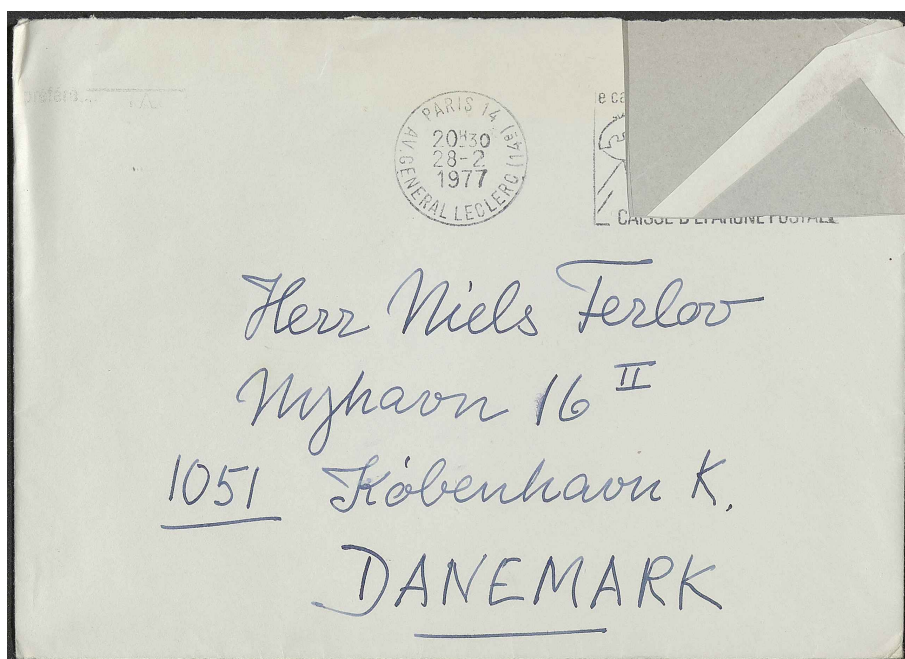 PARIS 14 (14e)
20H30
28-2
1977
AV. GENERAL LECLERC
le ca
CAISSE D'EPARGNE POSTALE
Herr Niels Ferlov
Nyhavn 16 II
1051 Kóbenhavn K.
DANEMARK